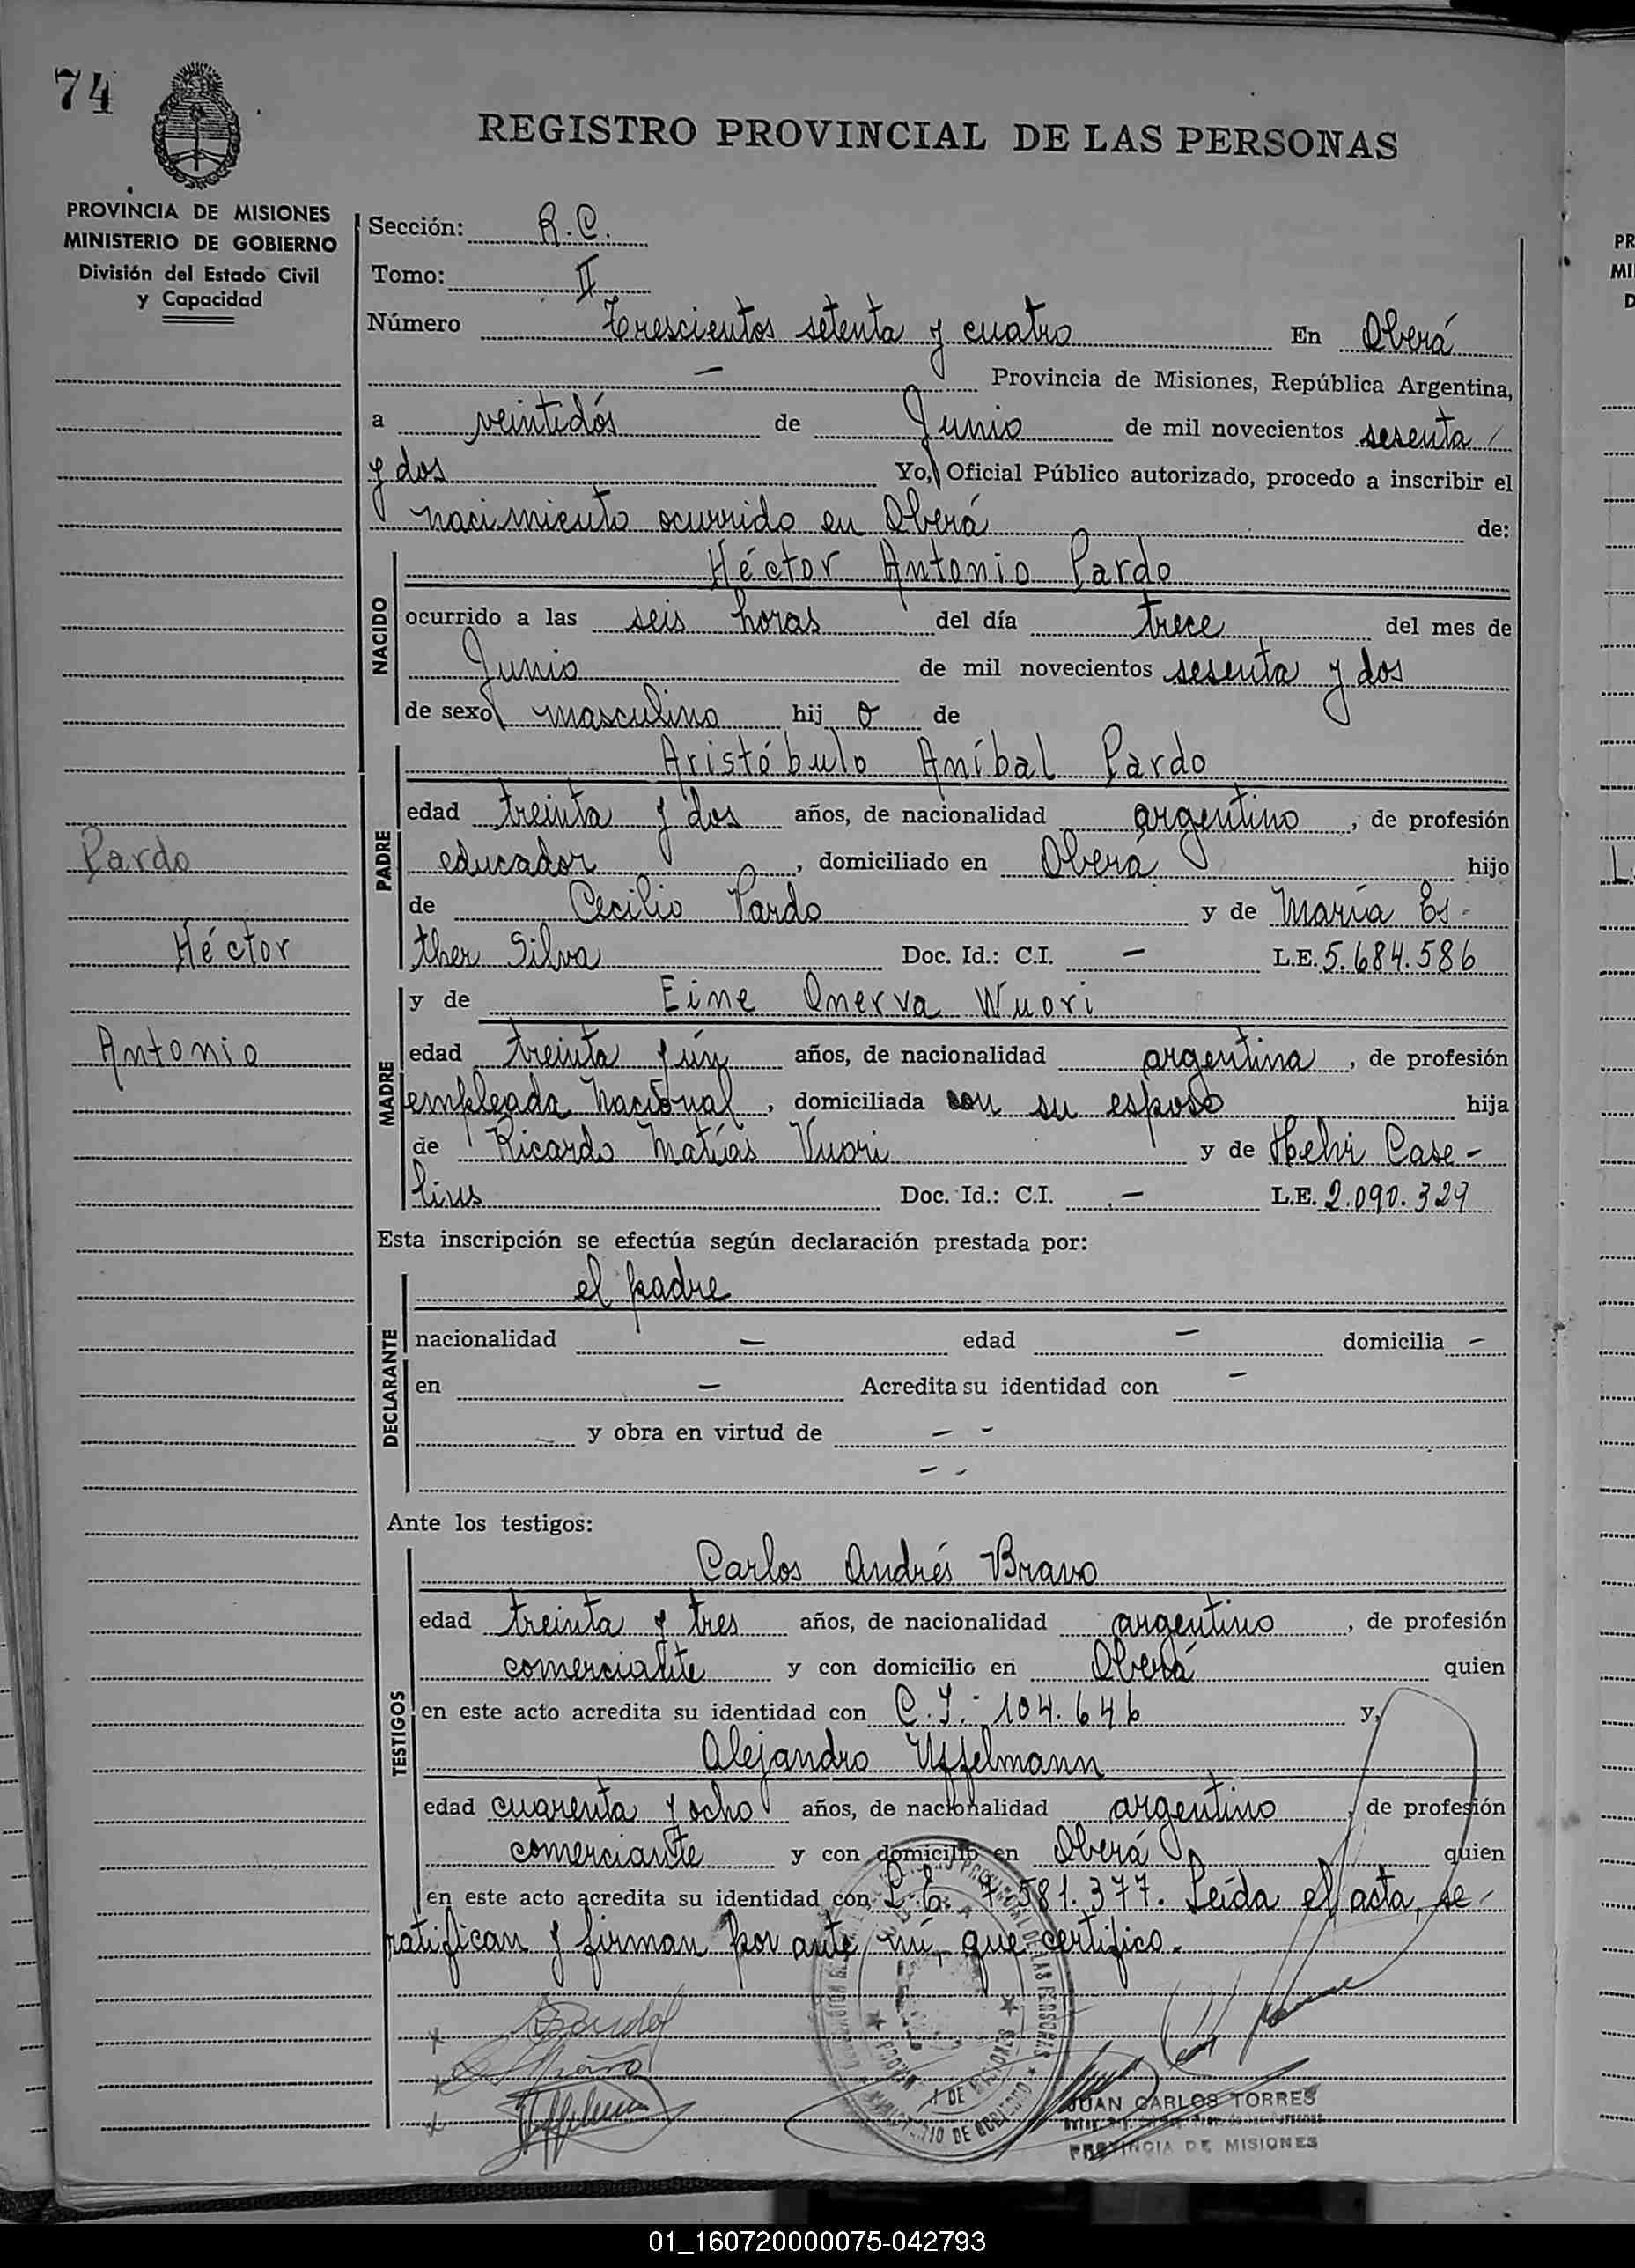 74
REGISTRO PROVINCIAL DE LAS PERSONAS
PROVINCIA DE MISIONES
MINISTERIO DE GOBIERNO
División del Estado Civil
y Capacidad
Sección: R.C.
Tomo: II
Número Trescientos setenta y cuatro En Oberá
— Provincia de Misiones, República Argentina,
a veintidós de Junio de mil novecientos sesenta
y dos Yo, Oficial Público autorizado, procedo a inscribir el
nacimiento ocurrido en Oberá de:
NACIDO
Héctor Antonio Pardo
ocurrido a las seis horas del día trece del mes de
Junio de mil novecientos sesenta y dos
de sexo masculino hij o de
PADRE
Aristóbulo Aníbal Pardo
edad treinta y dos años, de nacionalidad argentino, de profesión
educador, domiciliado en Oberá hijo
de Cecilio Pardo y de María Es-
ther Silva Doc. Id.: C.I. — L.E. 5.684.586
Pardo
Héctor
Antonio
MADRE
y de Eine Onerva Wuori
edad treinta y ún años, de nacionalidad argentina, de profesión
empleada Nacional, domiciliada con su esposo hija
de Ricardo Matías Vuori y de Helvi Case-
lius Doc. Id.: C.I. — L.E. 2.090.329
Esta inscripción se efectúa según declaración prestada por:
DECLARANTE
el padre
nacionalidad — edad — domicilia —
en — Acredita su identidad con —
— y obra en virtud de — -
— -
Ante los testigos:
TESTIGOS
Carlos Andrés Bravo
edad treinta y tres años, de nacionalidad argentino, de profesión
comerciante y con domicilio en Oberá quien
en este acto acredita su identidad con C.I. - 104.646 y,
Alejandro Uffelmann
edad cuarenta y ocho años, de nacionalidad argentino, de profesión
comerciante y con domicilio en Oberá quien
en este acto acredita su identidad con L.E. 7.581.377. Leída el acta, se
ratifican y firman por ante mí, que certifico.
JUAN CARLOS TORRES
PROVINCIA DE MISIONES
PROVINCIAL DE LAS PERSONAS
MINISTERIO DE GOBIERNO
01_160720000075-042793